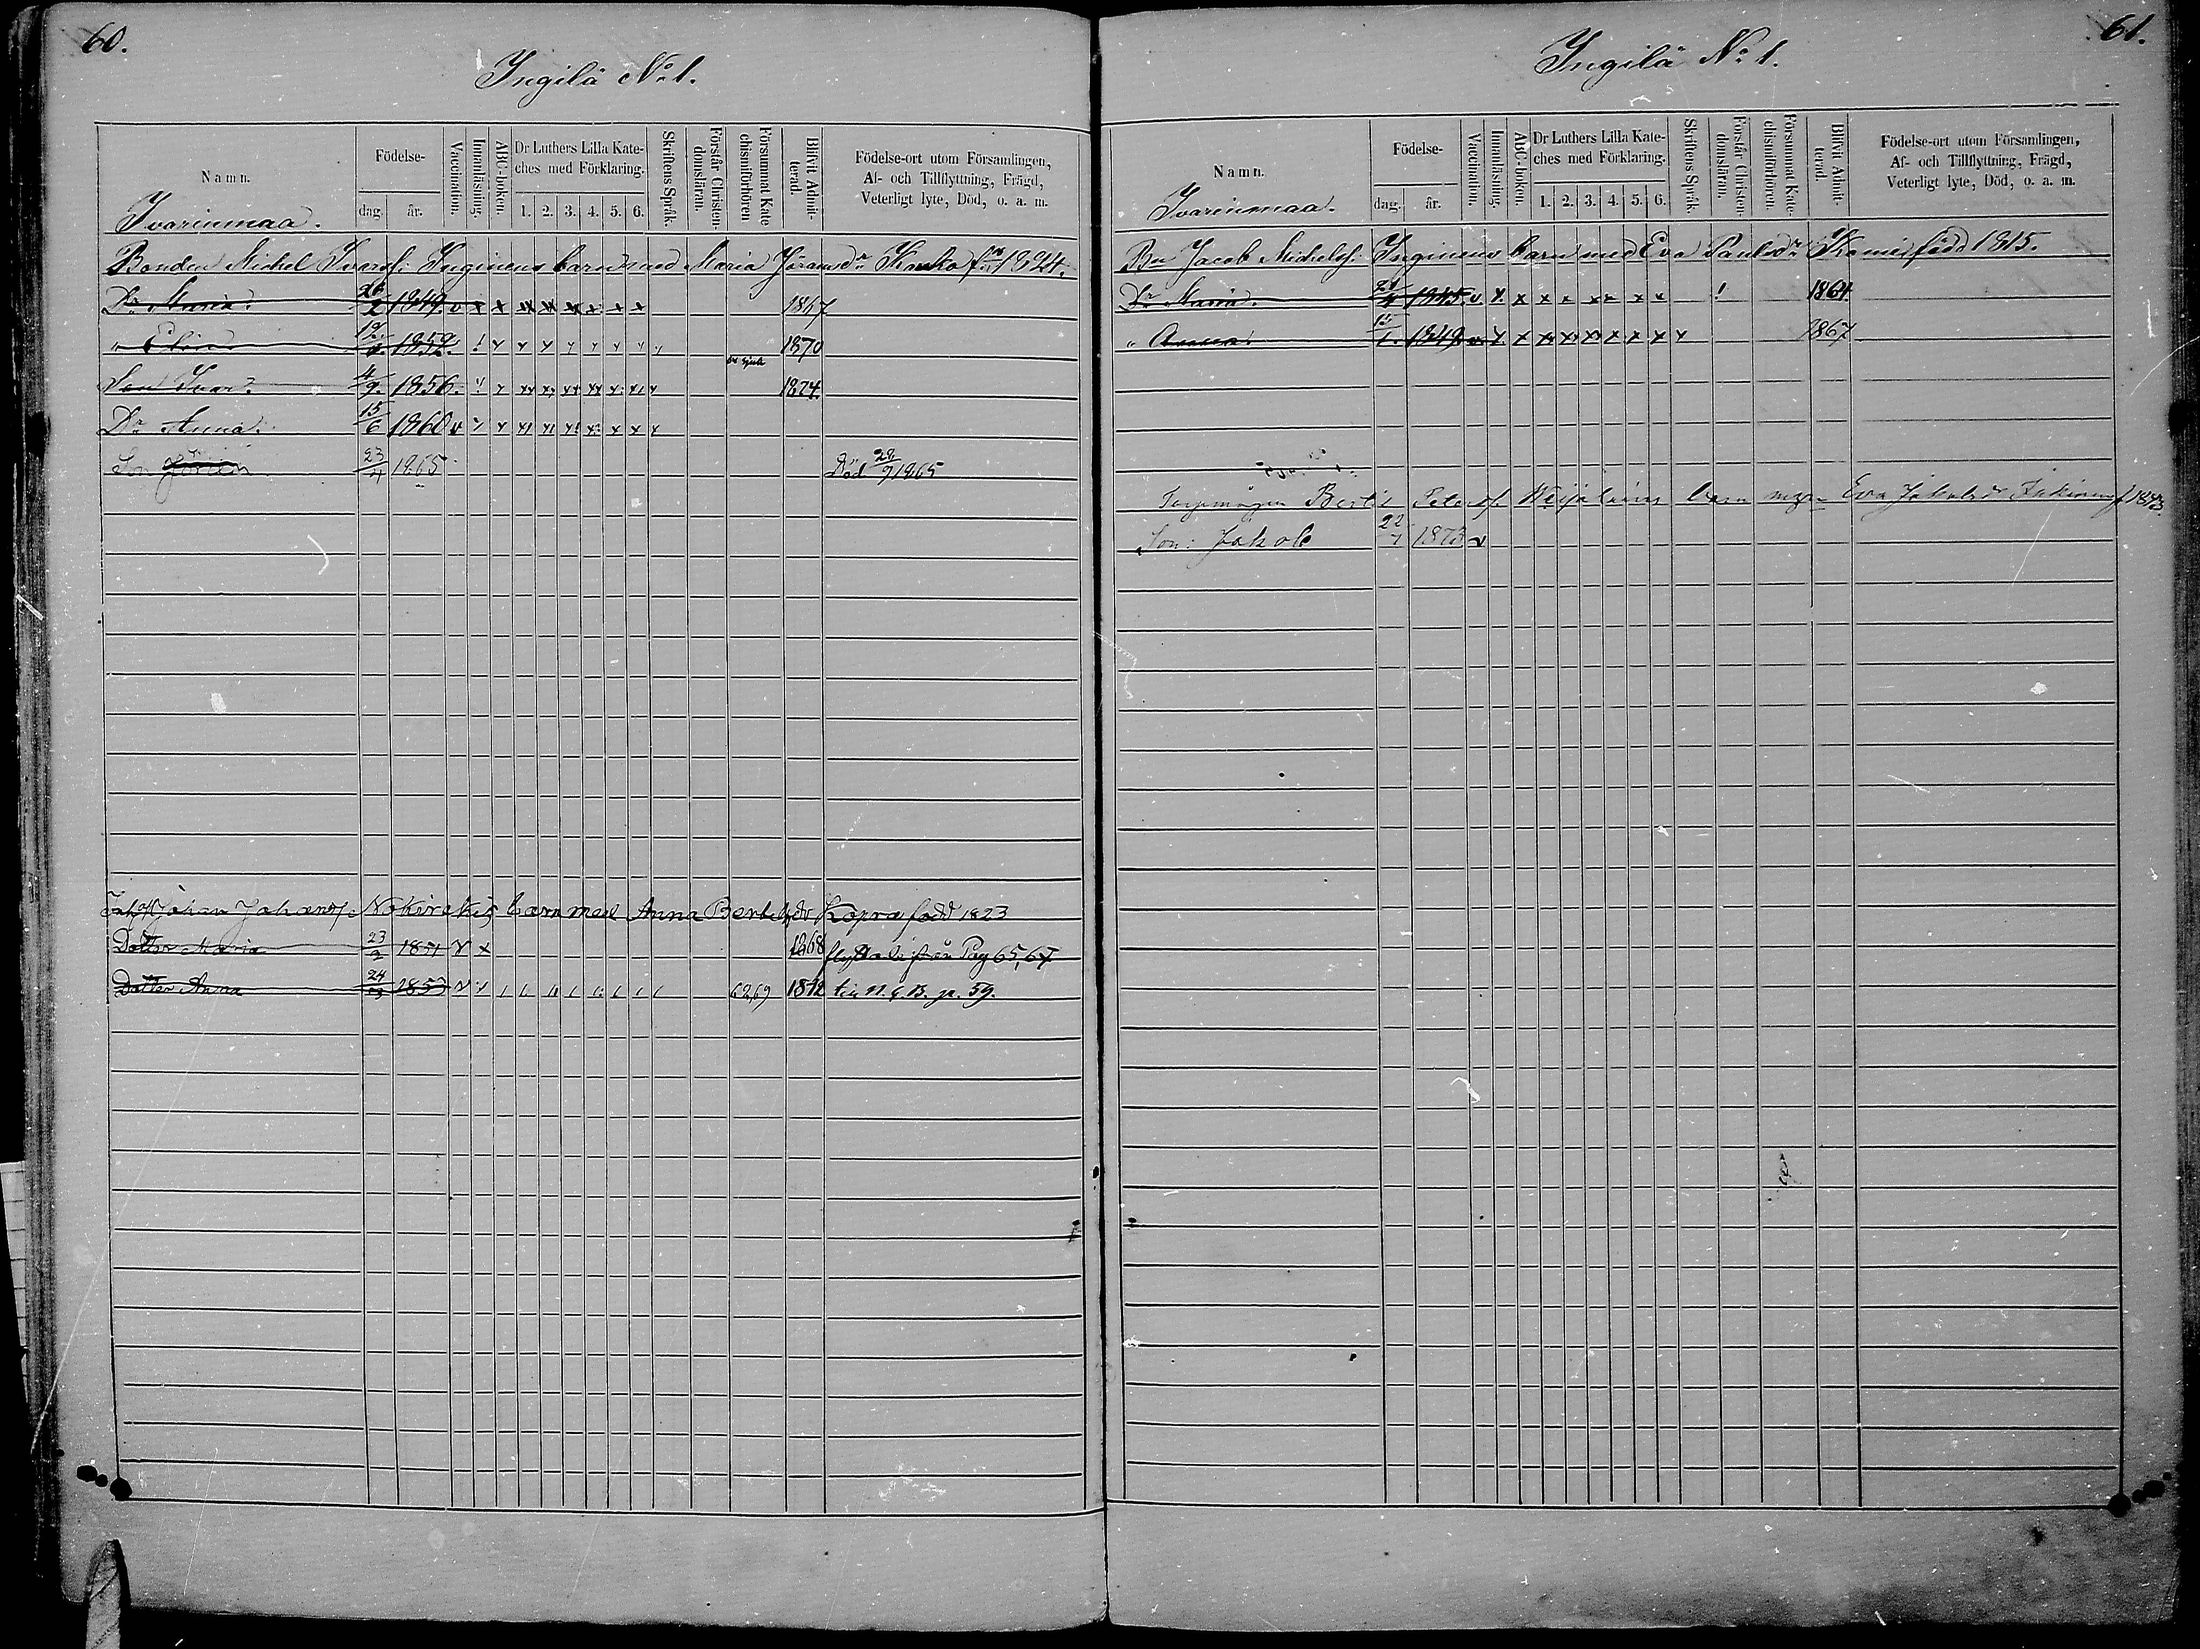 60.
Ingilä No 1.
Namn.
Födelse-
dag.
år.
Vaccination.
Innanläsning.
ABC-boken.
Dr Luthers Lilla Kate-
ches med Förklaring.
1. 2. 3. 4. 5. 6.
Skriftens Språk.
Förstår Christen-
domsläran.
Försummat Kate
chismiförhören
Blifvit Admit-
terad.
Födelse-ort utom Församlingen,
Af- och Tillflyttning, Frägd,
Veterligt lyte, Död, o. a. m.
Ivarinmaa.
Bonden Michel Ivarsf: Inginens barn med Maria Göransdr 1824.
Dr Maria. 26/2 1849. v x x x x x x x x 1867
" 1852. 1870
Son Ivar. 4/9. 1856. 1874.
Dr Anna. 15/6 1860 v
Son 23/4 1865 Död 28/9 1865
Johan Johansf barn med Anna Bertelsdr Kopra född 1823
Dotter Maria 23/2 1851 v x 1868 från Pag 65, 67
Dotter Anna 24 1853 v 62,69 1872 p. 59.
61.
Ingilä No 1.
Namn.
Födelse-
dag.
år.
Vaccination.
Innanläsning.
ABC-boken.
Dr Luthers Lilla Kate-
ches med Förklaring.
1. 2. 3. 4. 5. 6.
Skriftens Språk.
Förstår Christen-
domsläran.
Försummat Kate-
chismiförhören.
Blifvit Admit-
terad.
Födelse-ort utom Församlingen,
Af- och Tillflyttning, Frägd,
Veterligt lyte, Död, o. a. m.
Ivarinmaa.
Bn Jacob Michelsf: Inginens barn med Eva Paulsdr född 1815.
Dr Maria. 1845. v x x x x x x x x ! 1864
" Anna. 1849. v x x x x x x x x 1867
Bertil Petersf. barn Eva Jakobsdr f 1843.
Son: Jakob 22/7 1873 v